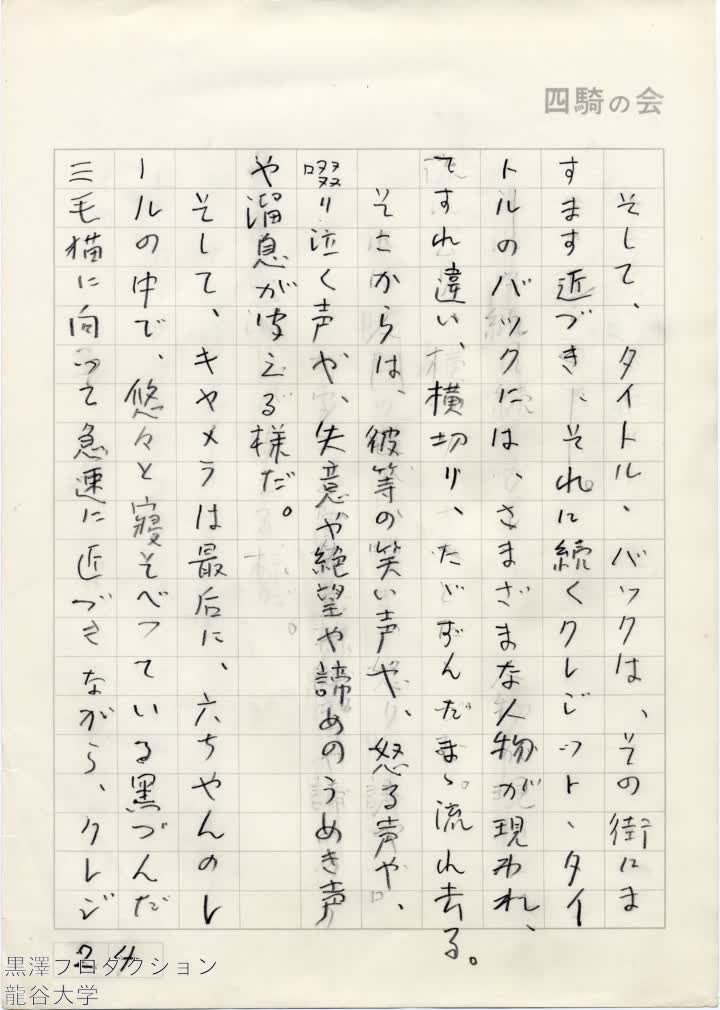 四騎の会
そして、タイトル・バックは、その街にま
すます近づき、それに続くクレジット・タイ
トルのバックには、さまざまな人物が現われ、
てすれ違い、横切り、たゝずんだまゝ流れ去る。
そこからは、彼等の笑い声や、怒る声や、
啜り泣く声や、失意や絶望や諦めのうめき声
や溜息が聞える様だ。
そして、キャメラは最后に、六ちゃんのレ
ールの中で、悠々と寝そべっている黒づんだ
三毛猫に向って急速に近づきながら、クレジ
24
黒澤プロダクション
龍谷大学